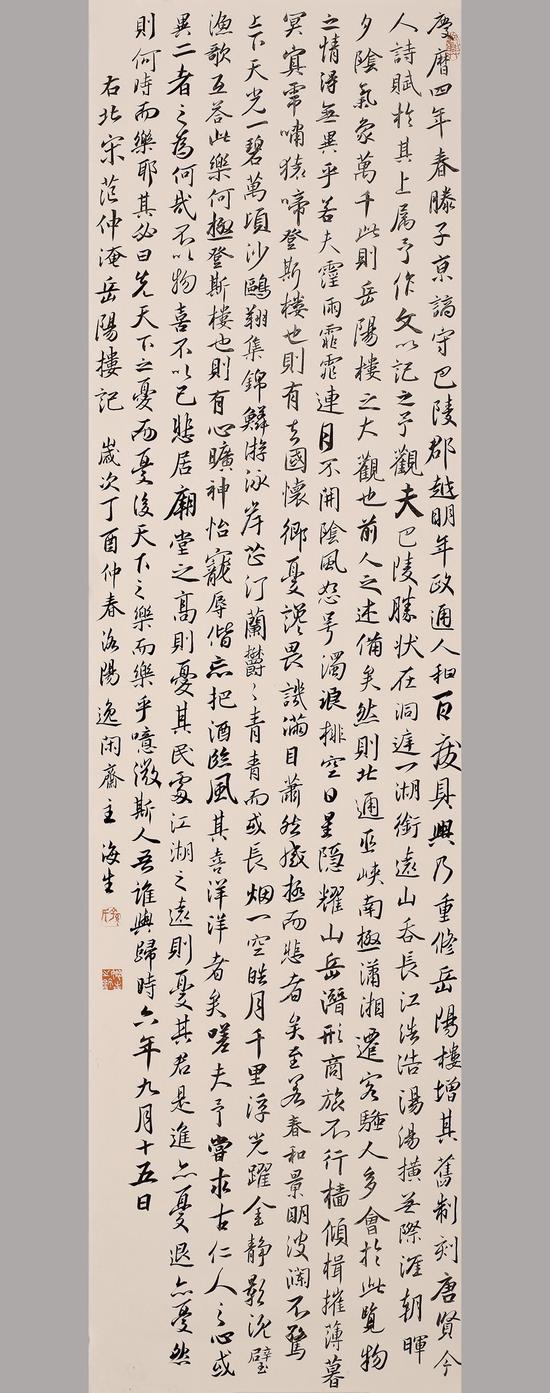 慶曆四年春滕子京謫守巴陵郡越明年政通人和百廢具興乃重修岳陽樓增其舊制刻唐賢今
人詩賦於其上属予作文以記之予觀夫巴陵勝状在洞庭一湖銜遠山吞長江浩浩湯湯橫無際涯朝暉
夕陰氣象萬千此則岳陽樓之大觀也前人之述備矣然則北通巫峽南極瀟湘遷客騷人多會於此覽物
之情得無異乎若夫霪雨霏霏連月不開陰風怒号濁浪排空日星隐耀山岳潛形商旅不行檣傾楫摧薄暮
冥冥虎嘯猿啼登斯樓也則有去國懷鄉憂讒畏譏滿目蕭然感極而悲者矣至若春和景明波瀾不驚
上下天光一碧萬頃沙鷗翔集錦鱗游泳岸芷汀蘭鬱〻青青而或長烟一空皓月千里浮光躍金静影沈璧
漁歌互答此樂何極登斯樓也則有心曠神怡寵辱偕忘把酒臨風其喜洋洋者矣嗟夫予嘗求古仁人之心或
異二者之為何哉不以物喜不以己悲居廟堂之高則憂其民處江湖之遠則憂其君是進亦憂退亦憂然
則何時而樂耶其必曰先天下之憂而憂後天下之樂而樂乎噫微斯人吾誰與歸時六年九月十五日
右北宋范仲淹岳陽樓記 歲次丁酉仲春洛陽逸閑齋主海生